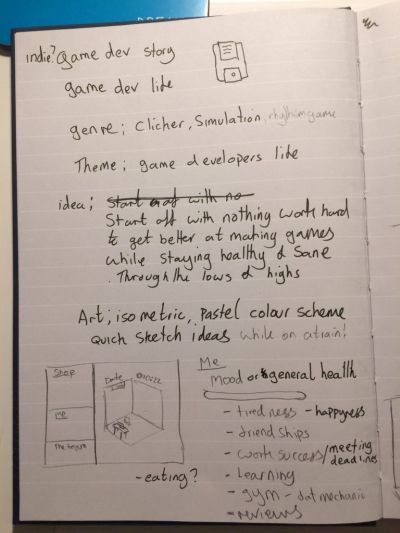 indie? game dev story
game dev life
genre; Clicker, Simulation, rhythm game
Theme; game developers life
idea; Start off with no
Start off with nothing work hard
to get better at making games
while staying healthy & sane
. Through the lows & highs
Art; isometric, Pastel colour scheme
Quick sketch ideas while on a train!
Shop
me
Date
Me
Mood or general health
- tiredness - happyness
- friendships
- work success/meeting deadlines
- Learning
- gym -
- reviews
- eating?